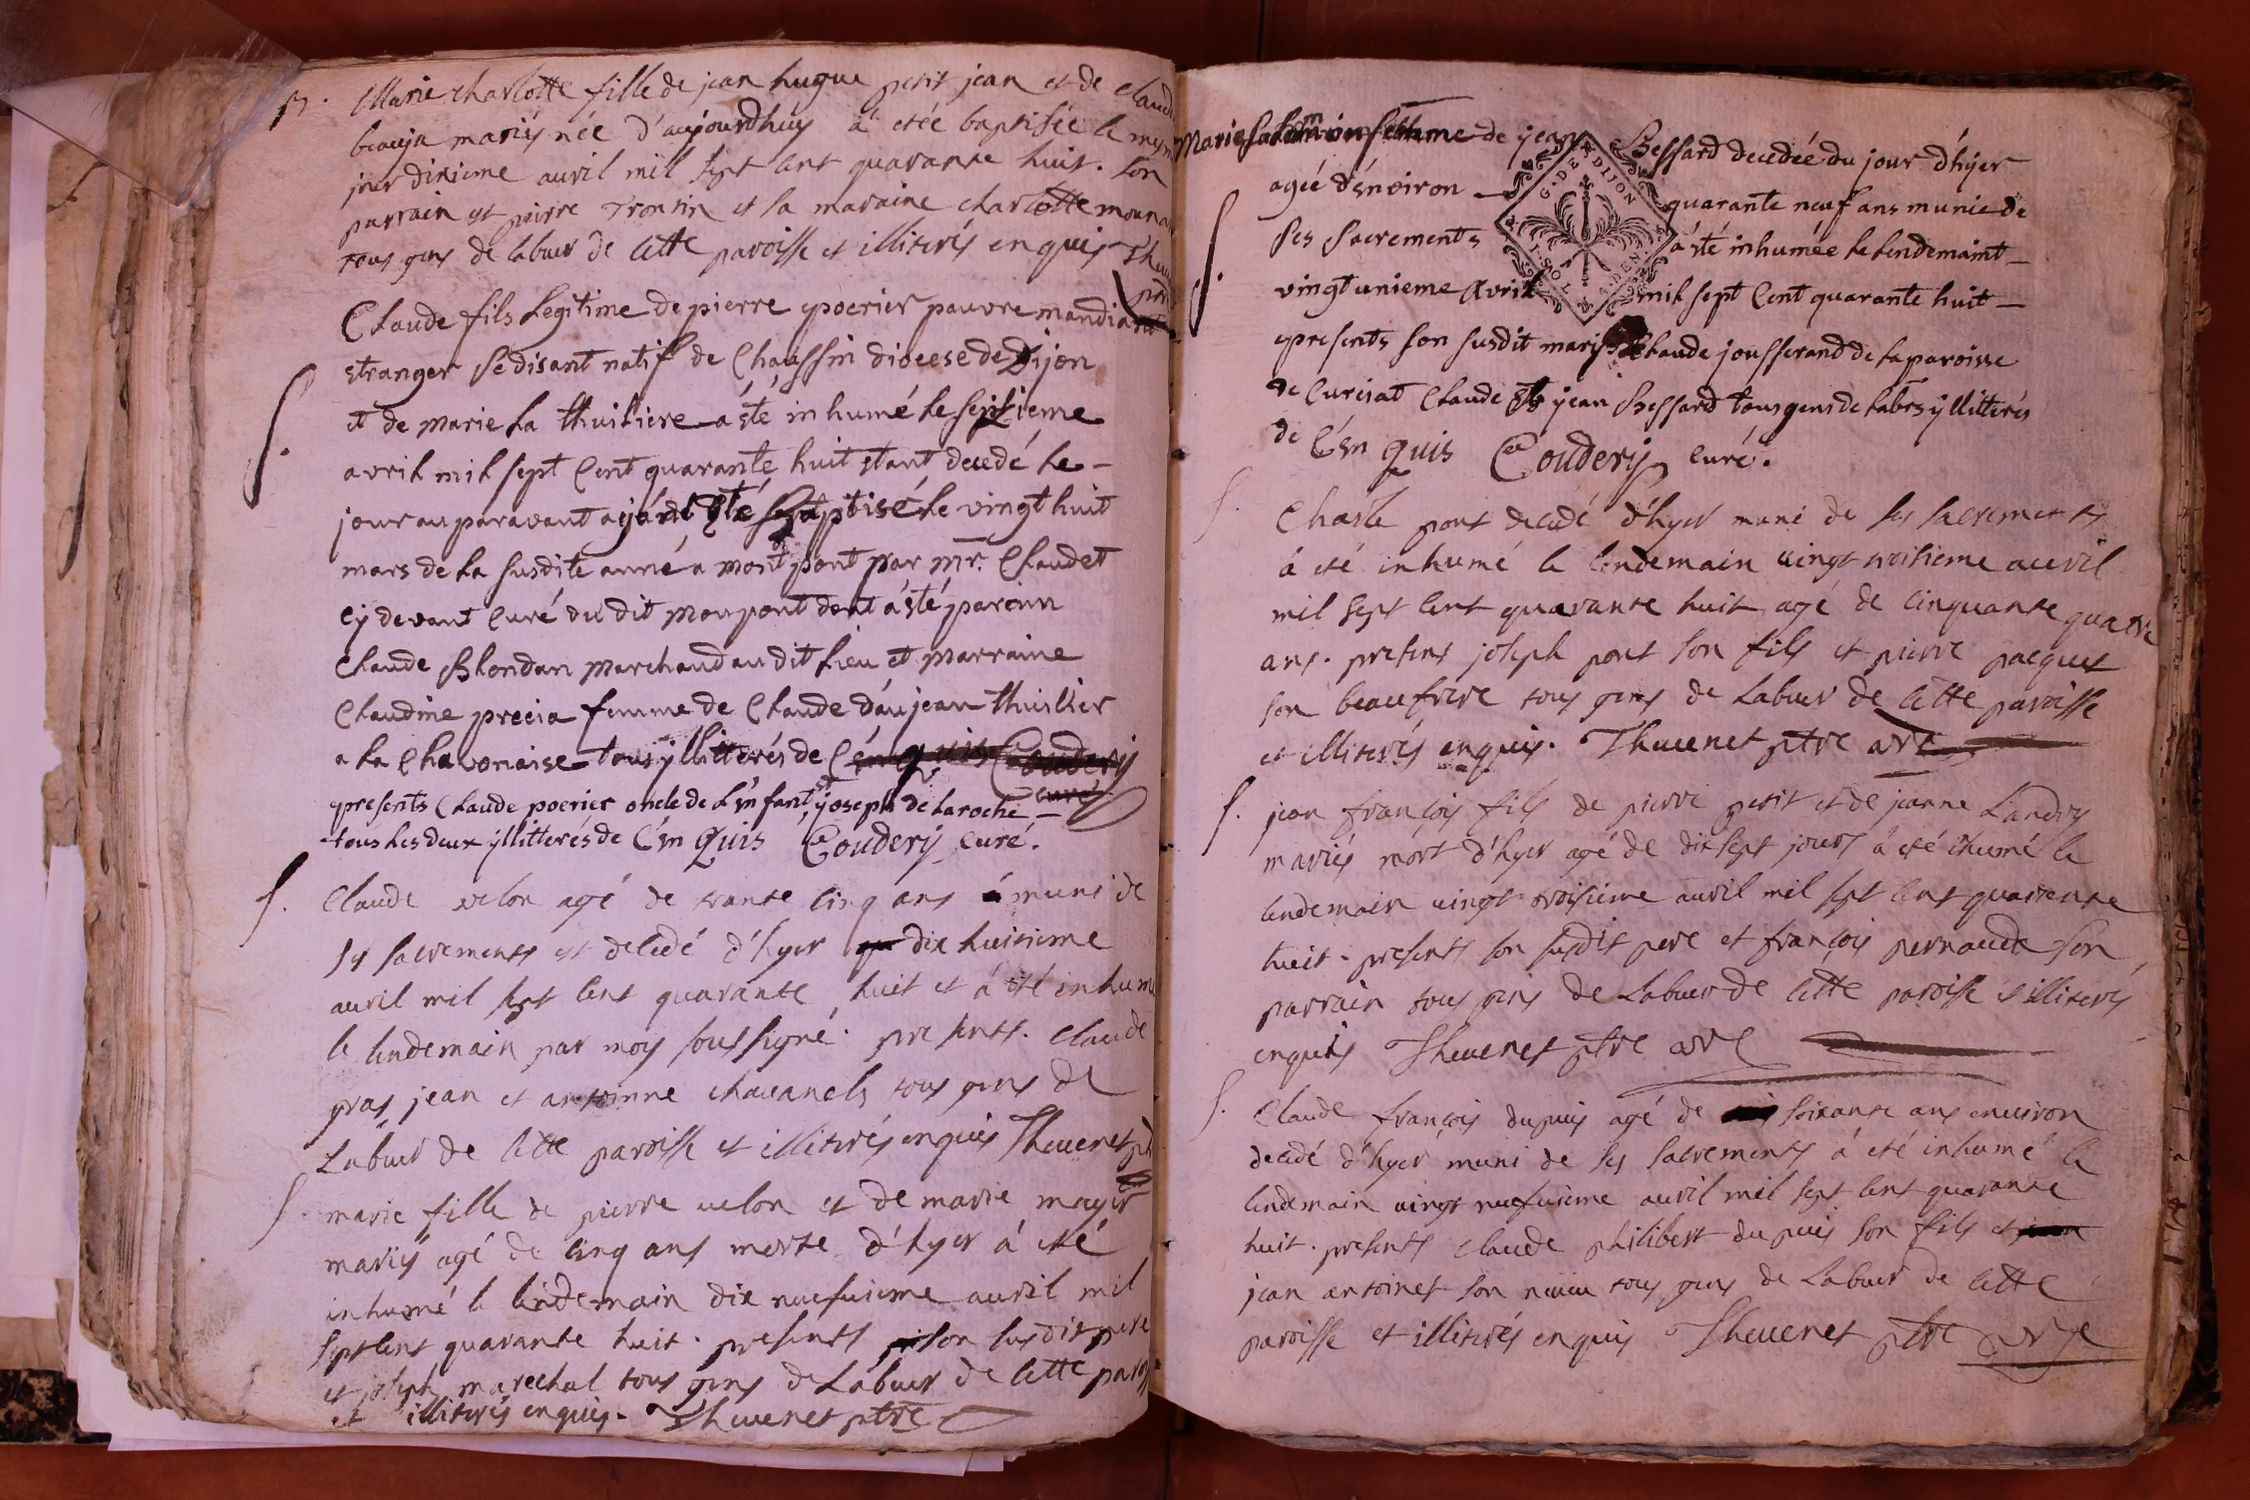 B. Marie charlotte fille de jean hugue petit jean et de claudi
beauja mariés née d'aujourdhüy a etée baptisée le mesm
jour dixieme auril mil sept cent quarante huit. son
parrain est pierre Trontin et la maraine charlotte mouna
tous gens de labeur de cette paroisse et illiterés enquis Theue
ptre
Claude fils Legitime de pierre poerier pauvre mandiant
etranger se disant natif de Chaussin diocese de Dijon
et de marie La thuiliere a été inhumé le septieme
S. avril mil sept Cent quarante huit etant decedé le -
jour auparavant ayant été Baptisé le vingt huit
mars de La susdite anné a montpont par mr. Claudet
Cy devant Curé du dit monpont dont a été parein
Claude Blondan marchand audit Lieu et marraine
Claudine precia femme de Claude d'aujean thuillier
a La Chavonaise tous yllitterés de Cénquis Coudery
curé
presents Claude poerier oncle de L'énfant, et joseph de Laroche -
tous Les deux yllitterés de Cén Quis Coudery Curé.
S. Claude velon agé de trante cinq ans a muni de
ses sacrements est decedé d'hyer dix huitieme
auril mil sept cent quarante huit et á été inhum
le lendemain par moy soussigné. presents. Claude
pras, jean et antoinne chauanels tous gens de
Labeur de cette paroisse et illiterés enquis Theuenet ptr
S. marie fille de pierre uelon et de marie mayer
mariés agé de cinq ans morte d'hyer á eté
inhumé le lendemain dix neufuieme auril mil
sept cent quarante huit. presents son susdit pere
et joseph marechal tous gens de Labeur de cette paro
et illiterés enquis. Theuenet ptre
Marie Salomon femme de jean Bessard decedée du jour d'hyer
agée d'énviron - quarante neuf ans munie de
S. ses sacrements a été inhumée le lendemaint -
vingtunieme Avril mil sept Cent quarante huit -
G. DE DIJON
presents son susdit mary Claude jousserand de La paroisse
de Curciat Claude et jean Bessard tous gens de Labrs yllitterés
de Cén Quis Coudery Curé.
S. Charle pont decedé d'hyer muni de ses sacrements
á eté inhumé le lendemain uingt troisieme aueril
mil sept cent quarante huit agé de cinquante quatre
ans. presens joseph pont son fils et pierre pacquet
son beaufrere tous gens de Labeur de cette paroisse
et illiterés enquis. Theuenet ptre
S. jean françois fils de pierre petit et de jeanne Landry
mariés mort d'hyer agé de dix sept jours á eté ihumé le
lendemain uingt troisieme auril mil sept cent quarente
huit. presents son susdit pere et françois pernaude son
parrain tous gens de Labeur de cette paroisse et illiterés
enquis Theuenet ptre
S. Claude françois dupuis agé de soixante ans enuiron
decedé d'hyer muni de ses sacrements á eté inhumé le
lendemain uingt neufuieme auril mil sept cent quarante
huit. presents Claude philibert dupuis son fils et
jean antoinet son neueu tous gens de Labeur de cette
paroisse et illiterés enquis Theuenet ptre